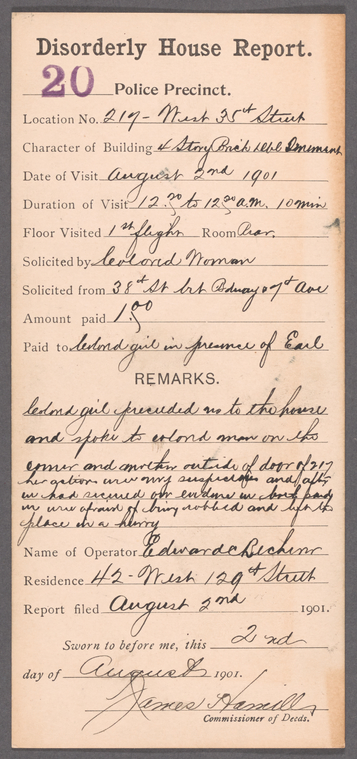 Disorderly House Report.
20 Police Precinct.
Location No. 217 - West 35th Street
Character of Building 4 Story Brick Dble Tenement
Date of Visit August 2nd 1901
Duration of Visit 12.20 to 12.30 a.m. 10 min
Floor Visited 1st flight Room Rear.
Solicited by Colored Woman
Solicited from 38th St bet Bdway & 7th Ave
Amount paid 1.00
Paid to Colord girl in presence of Earl
REMARKS.
Colord girl preceeded us to the house
and spoke to colord man on the
corner and another outside of door of 217
her actions were very suspicious and after
we had secured our evidence in back party
we were afraid of being robbed and left the
place in a hurry
Name of Operator Edward
Residence 42 - West 129th Street
Report filed August 2nd 1901.
Sworn to before me, this 2nd
day of August 1901.
James Hamill
Commissioner of Deeds.